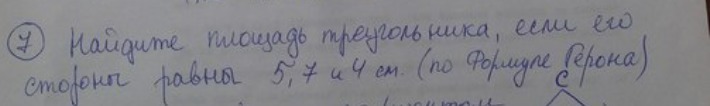 7 Найдите площадь треугольника, если его
стороны равны 5, 7 и 4 см. (по Формуле Герона)
C